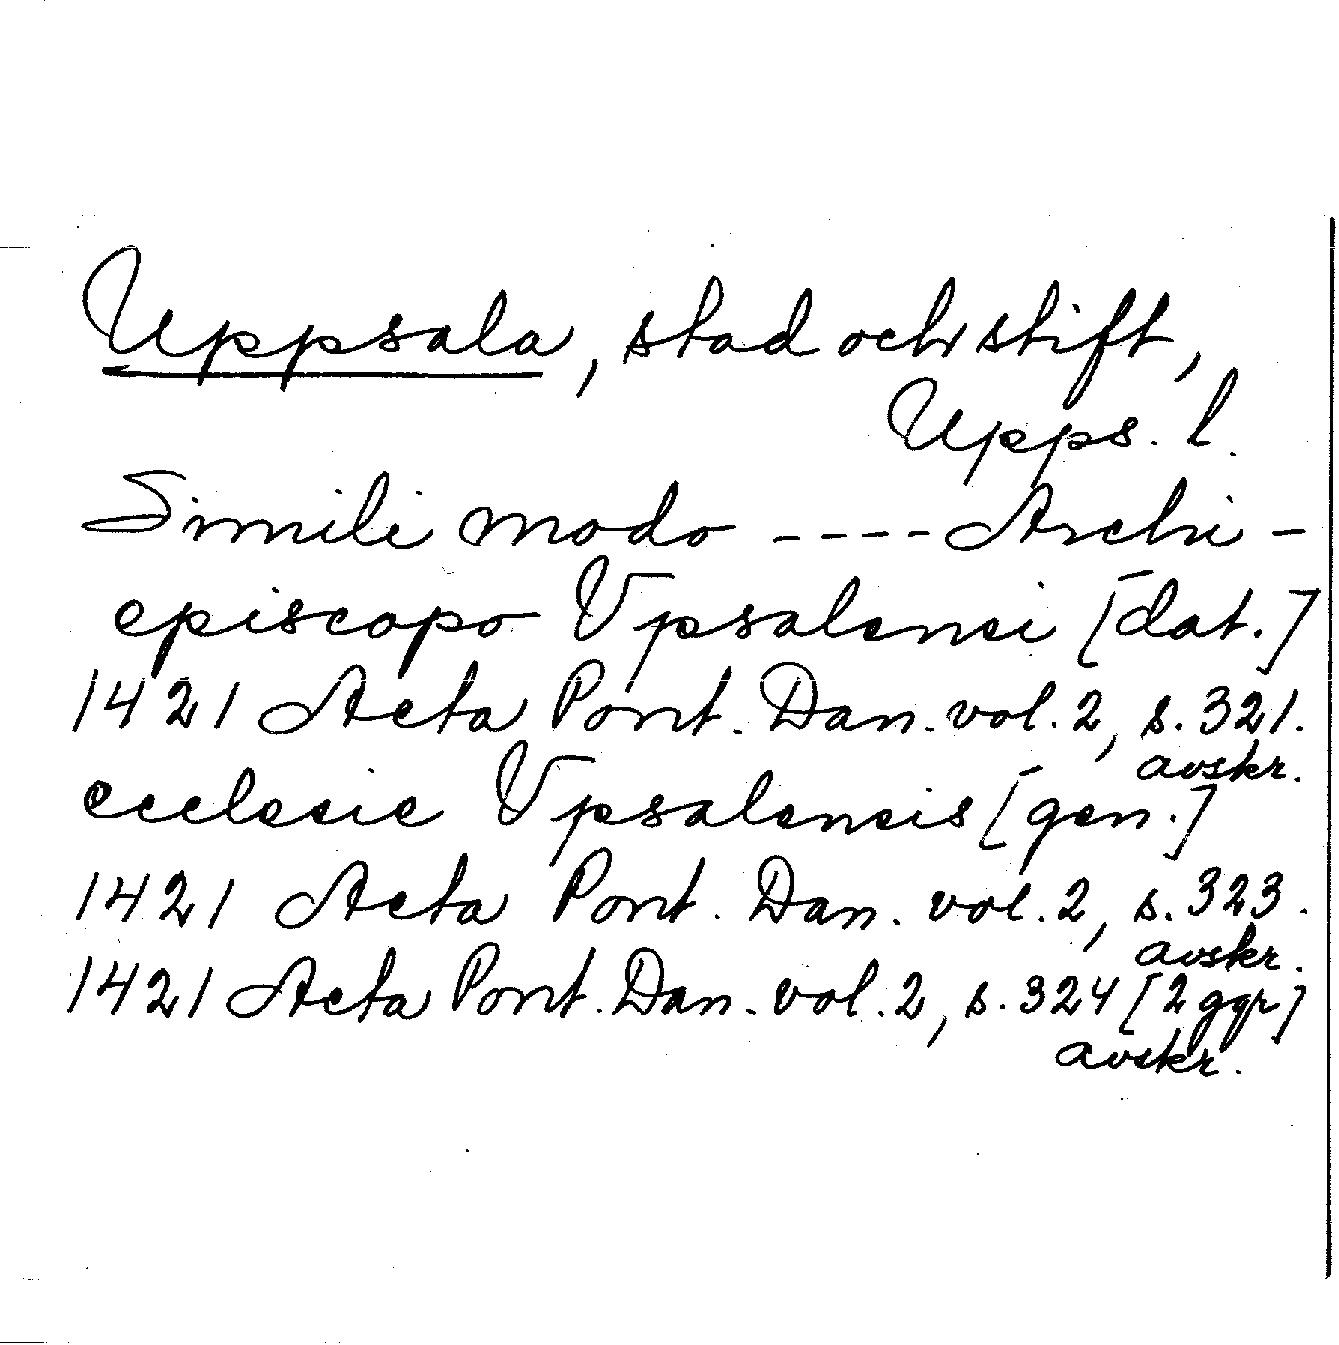 Uppsala, stad och stift,
Upps. l.
Simili modo ---- Archi-
episcopo Vpsalensi [dat.]
1421 Acta Pont. Dan. vol. 2, s. 321.
avskr.
ecclesie Vpsalensis [gen.]
1421 Acta Pont. Dan. vol. 2, s. 323.
avskr.
1421 Acta Pont. Dan. vol. 2, s. 324 [2 ggr]
avskr.